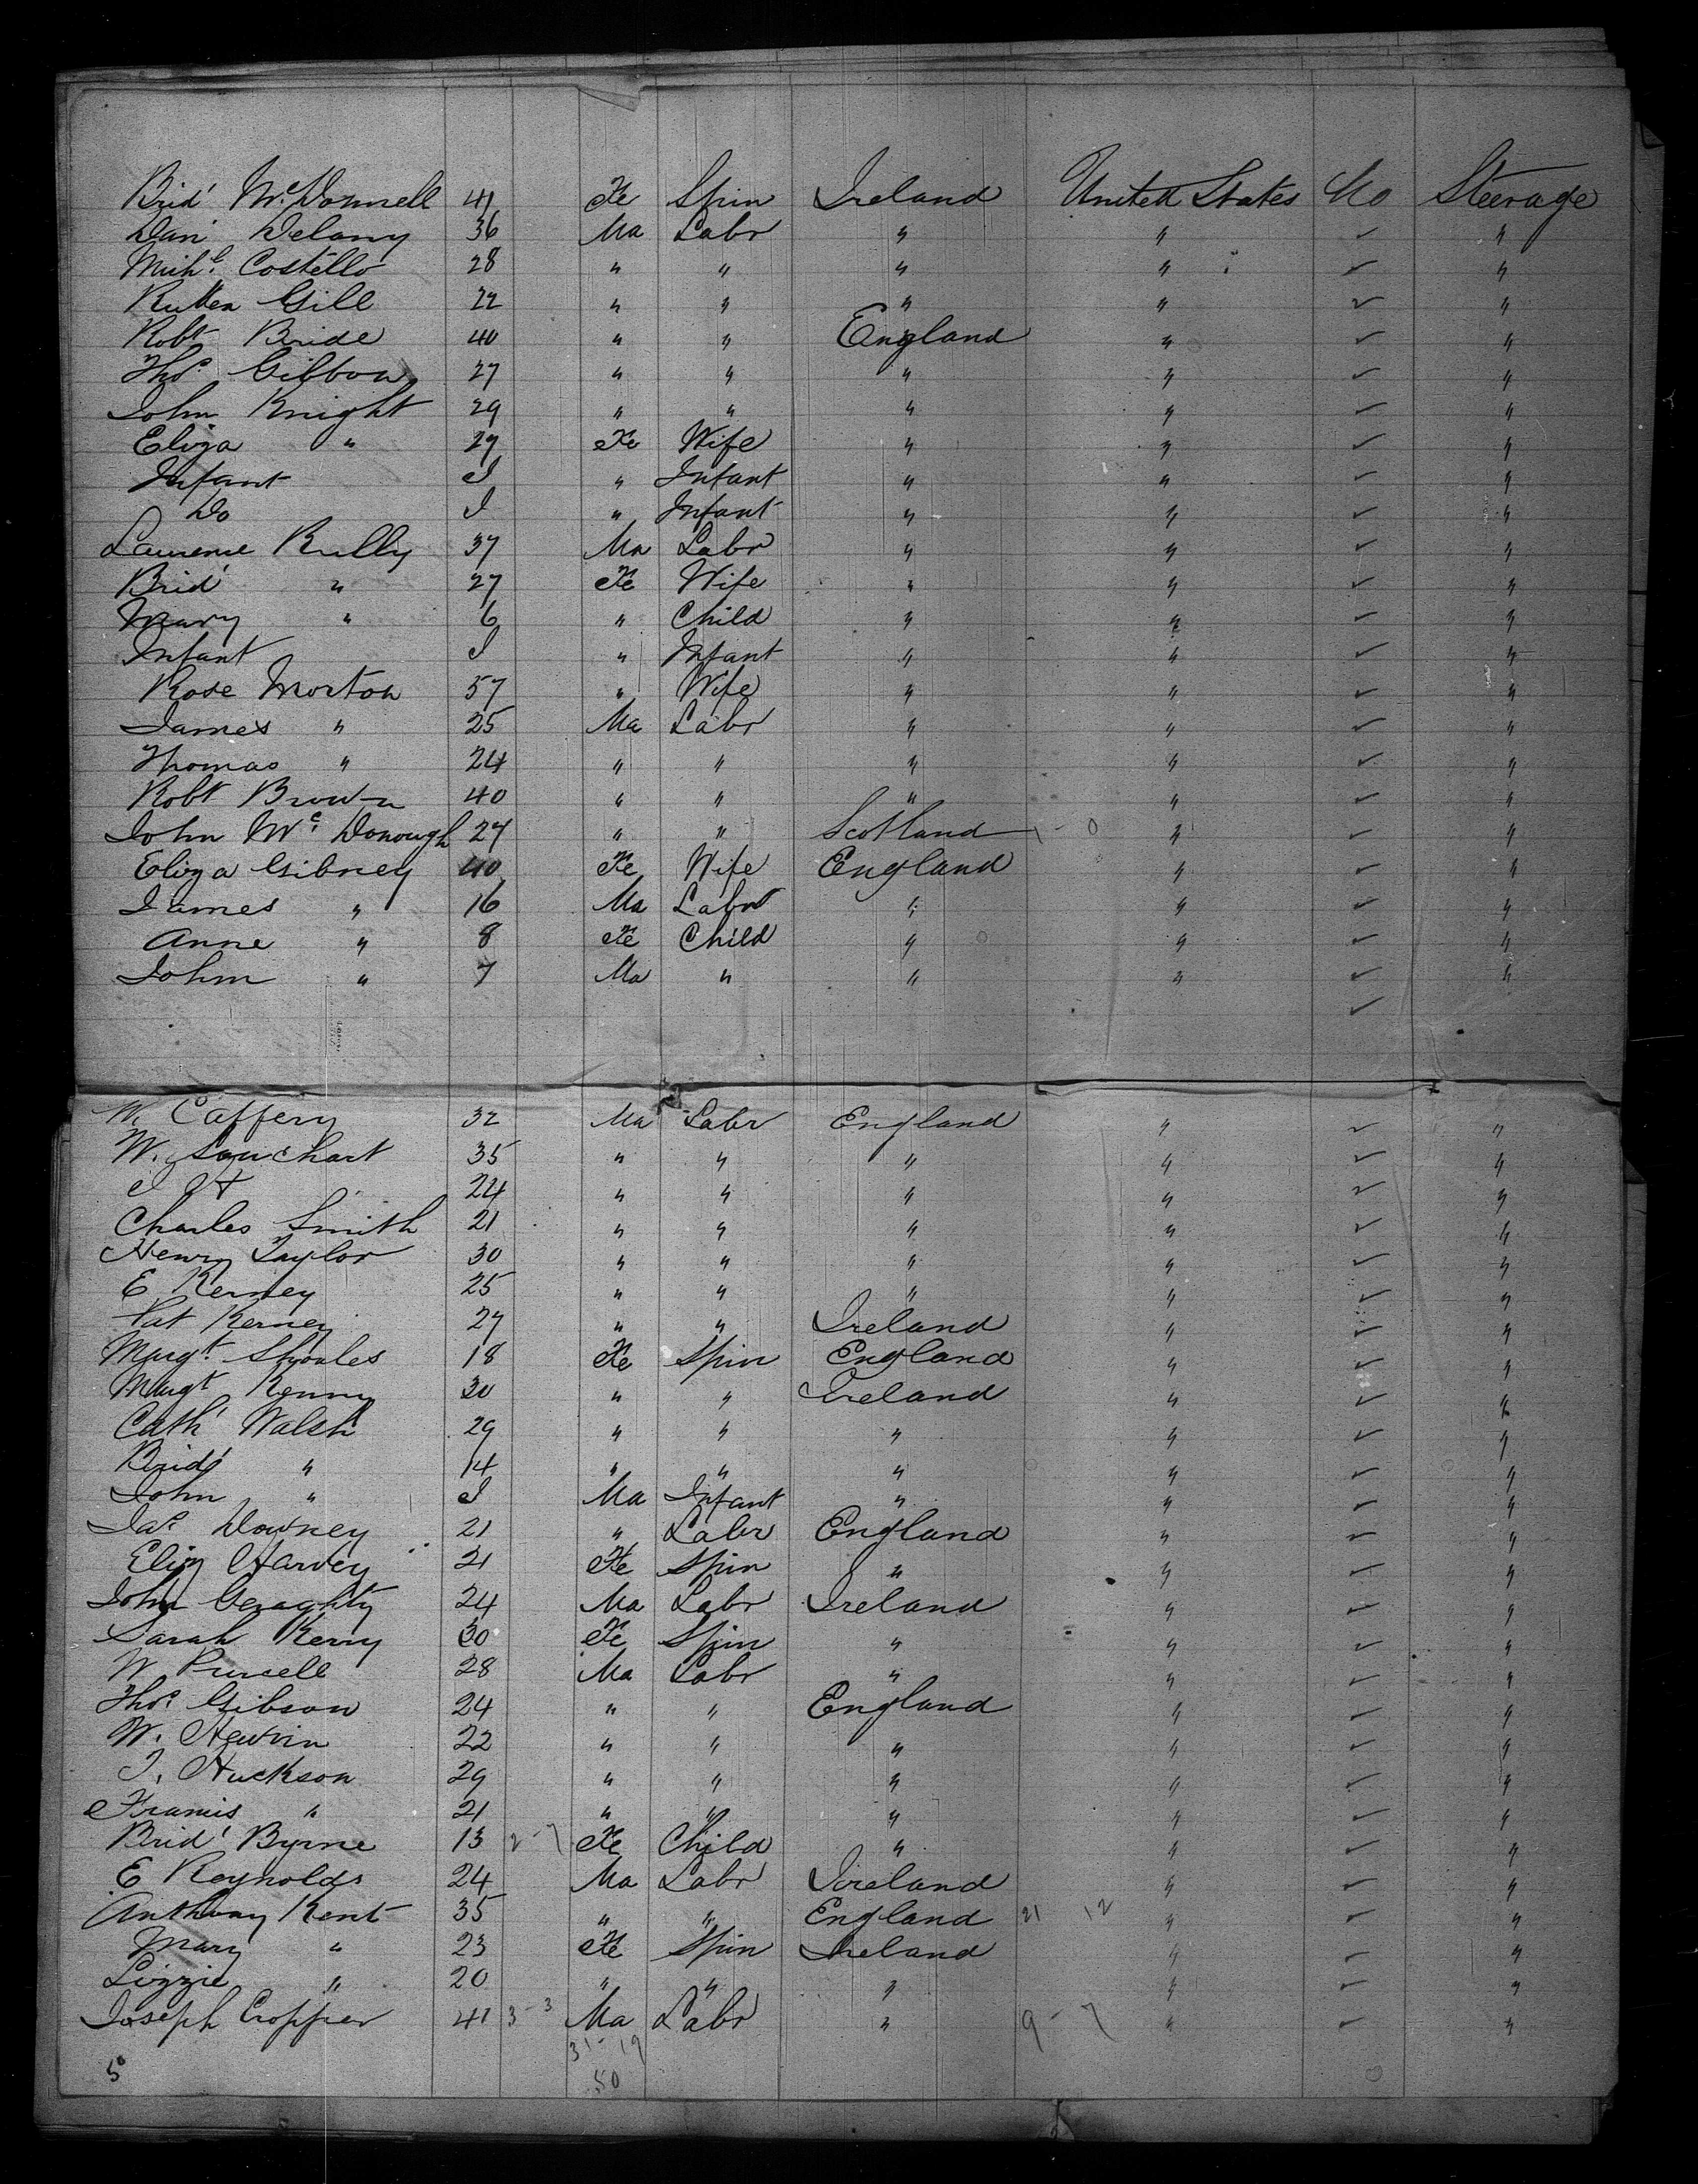 Brid' McDonnell 41 Fe Spin Ireland United States No Steerage
Dan' Delany 36 Ma Labr " " ✓ "
Mich.l Costello 28 " " " " ✓ "
Gill 22 " " " " ✓ "
Robt Bride 40 " " England " ✓ "
Thos. Gibbon 27 " " " " ✓ "
John Knight 29 " " " " ✓ "
Eliza " 29 Fe Wife " " ✓ "
Infant I " Infant " " ✓ "
Do I " Infant " " ✓ "
Laurence Rully 37 Ma Labr " " ✓ "
Brid' " 27 Fe Wife " " ✓ "
Mary " 6 " Child " " ✓ "
Infant I " Infant " " ✓ "
Rose Morton 57 " Wife " " ✓ "
James " 25 Ma Labr " " ✓ "
Thomas " 24 " " " " ✓ "
Robt Brown 40 " " " " ✓ "
John Mc. Donough 27 " " Scotland 1 - 0 " ✓ "
Eliza Gibney 40 Fe Wife England " ✓ "
James " 16 Ma Labr " " ✓ "
Anne " 8 Fe Child " " ✓ "
John " 7 Ma " " " ✓ "
✓
Caffery 32 Ma Labr England " ✓ "
W. 35 " " " " ✓ "
24 " " " " ✓ "
Charles Smith 21 " " " " ✓ "
Henry Taylor 30 " " " " ✓ "
E Kerney 25 " " " " ✓ "
Pat Kerney 27 " " Ireland " ✓ "
Margt. 18 Fe Spin England " ✓ "
Margt Kenny 30 " " Ireland " ✓ "
Cath' Walsh 29 " " " " ✓ "
Brid' " 14 " " " " ✓ "
John " I Ma Infant " " ✓ "
Jas Downey 21 " Labr England " ✓ "
Eliz Harvey 21 Fe Spin " " ✓ "
John Geraghty 24 Ma Labr Ireland " ✓ "
Sarah Kerry 30 Fe Spin " " ✓ "
W Pursell 28 Ma Labr " " ✓ "
Thos. Gibson 24 " " England " ✓ "
W. Newin 22 " " " " ✓ "
J. Huckson 29 " " " " ✓ "
Francis " 21 " " " " ✓ "
Brid' Byrne 13 2 - 7 Fe Child " " ✓ "
E Reynolds 24 Ma Labr Ireland " ✓ "
Anthony Kent 35 " " England 21 12 " ✓ "
Mary " 23 Fe Spin Ireland " ✓ "
Lizzie " 20 " " " " ✓ "
Joseph Cropper 41 3 - 3 Ma Labr " 9 - 7 " ✓ "
31 - 19
50